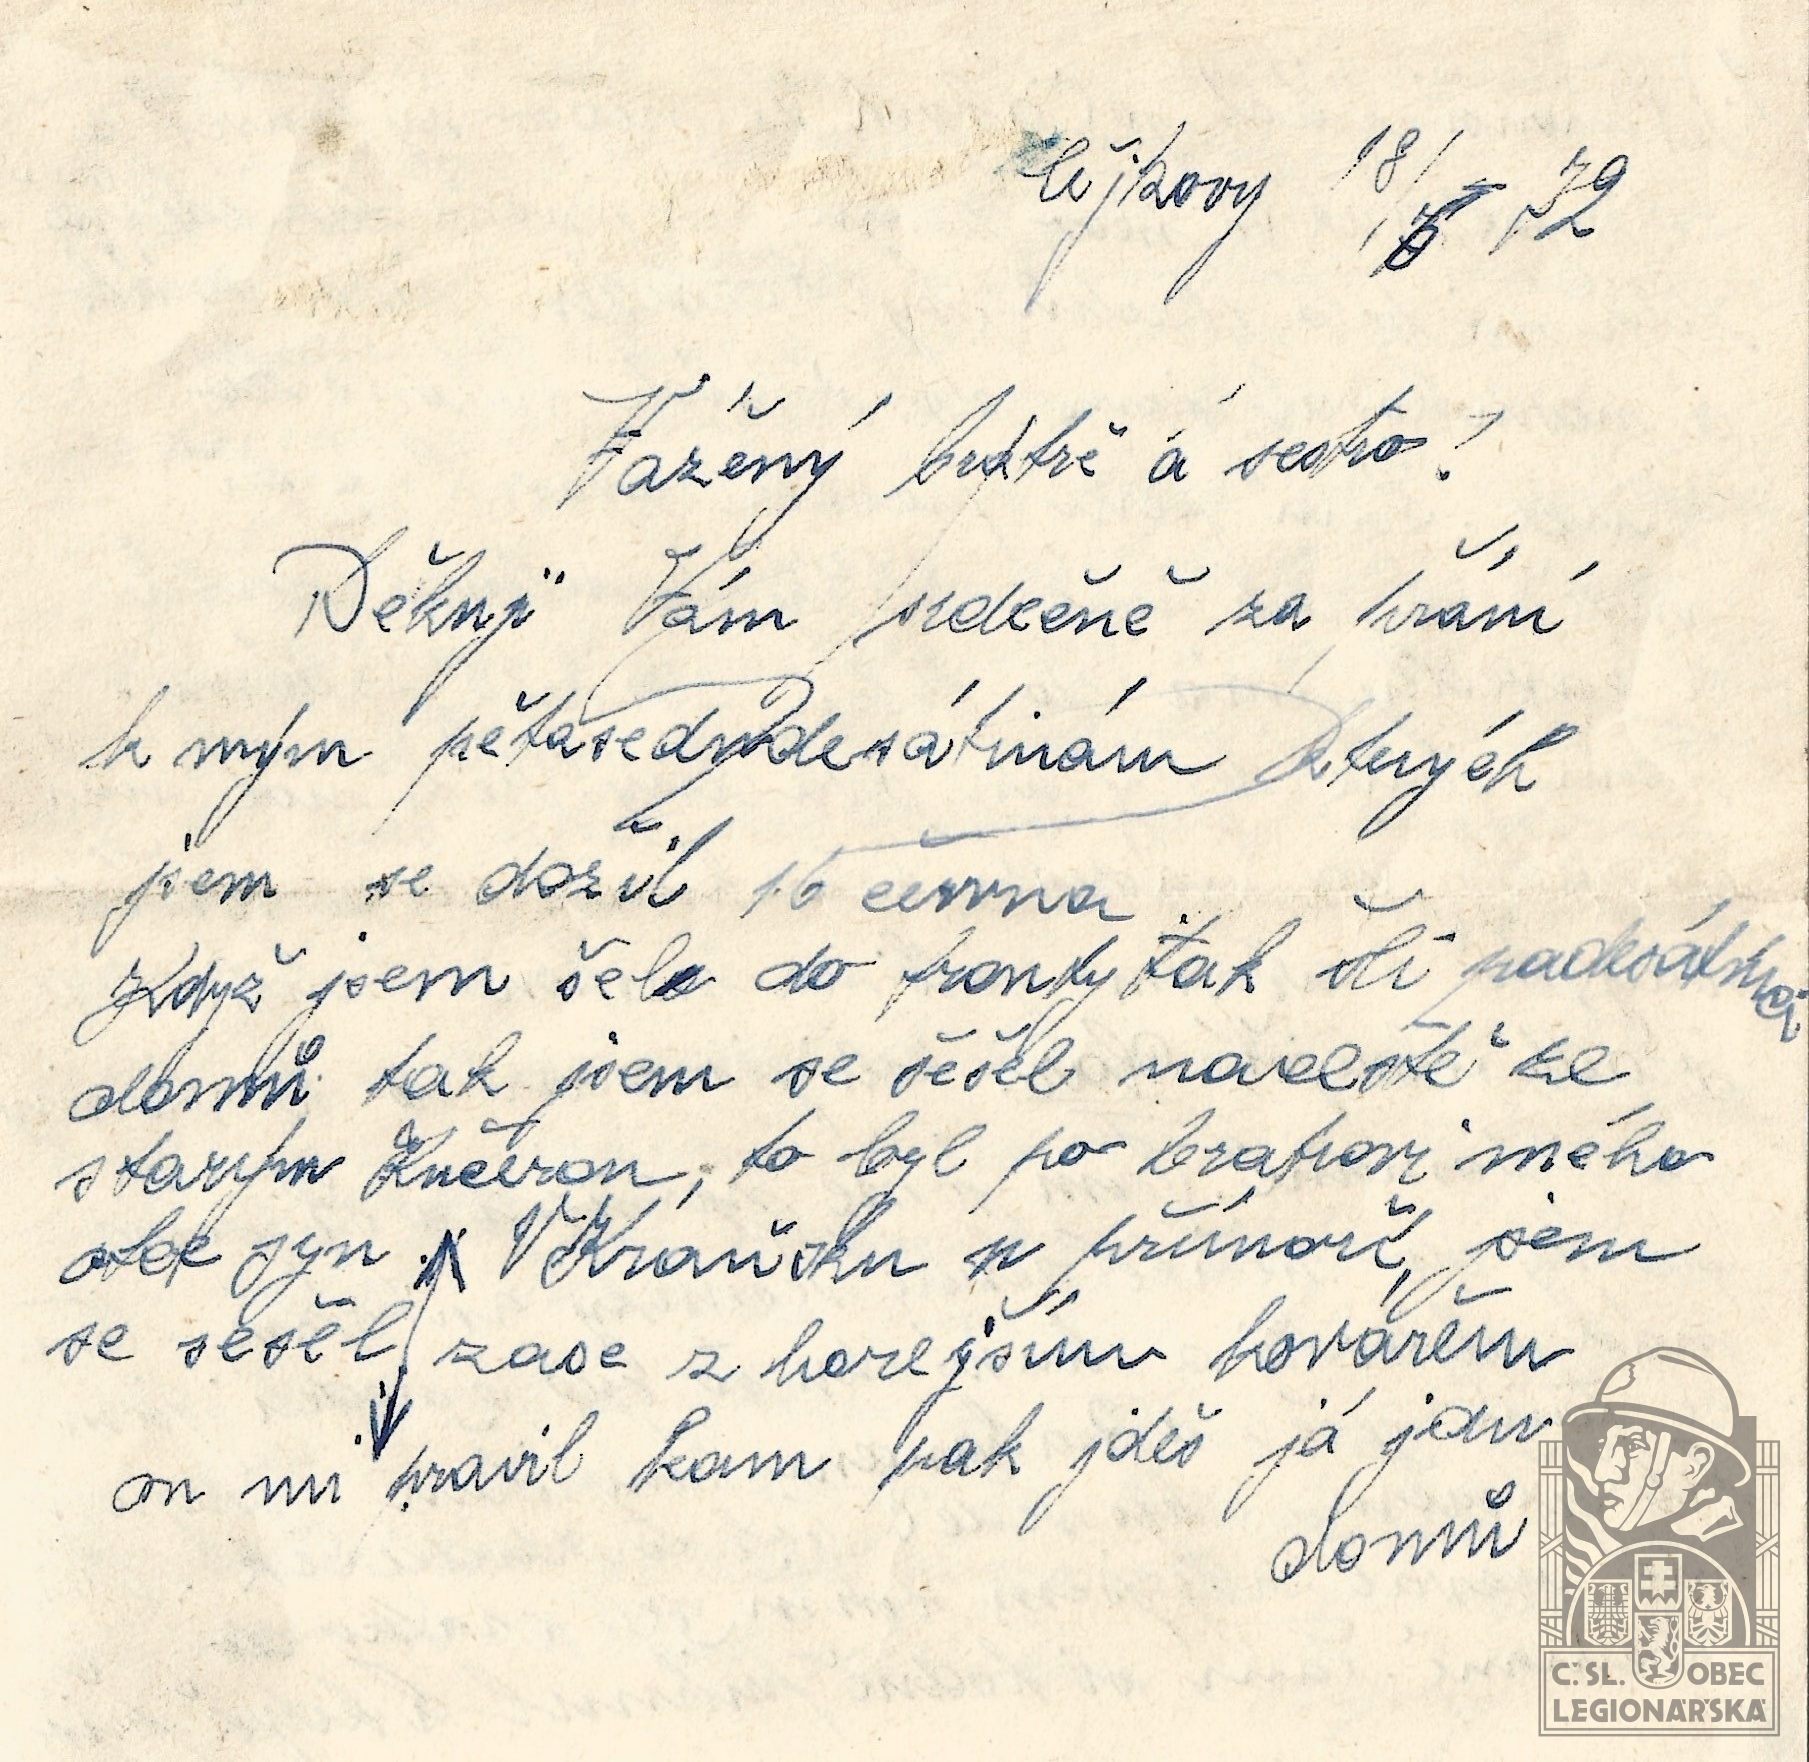 18/6 72
Vážený bratře á sestro!
Děkuji Vám srdečně za přání
k mým pětasedmdesátinám kterých
jsem se dožil 16 června
Když jsem šel do fronty tak šli padesátníci
domů tak jsem se sešel navelště ze
starým Kučerou, to byl po bratrovi mého
otce syn. V Kraňsku v přímoří, jsem
se sešel zase z horejším kovářem
on mi pravil kam pak jdeš já jdu
domů
Č. SL. OBEC
LEGIONÁŘSKÁ